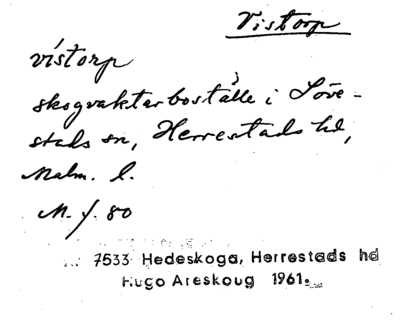 Vistorp
vístorp
skogvaktarboställe i Löve-
stads sn, Herrestads hd,
Malm. l.
M. f. 80
7533 Hedeskoga, Herrestads hd
Hugo Areskoug 1961.